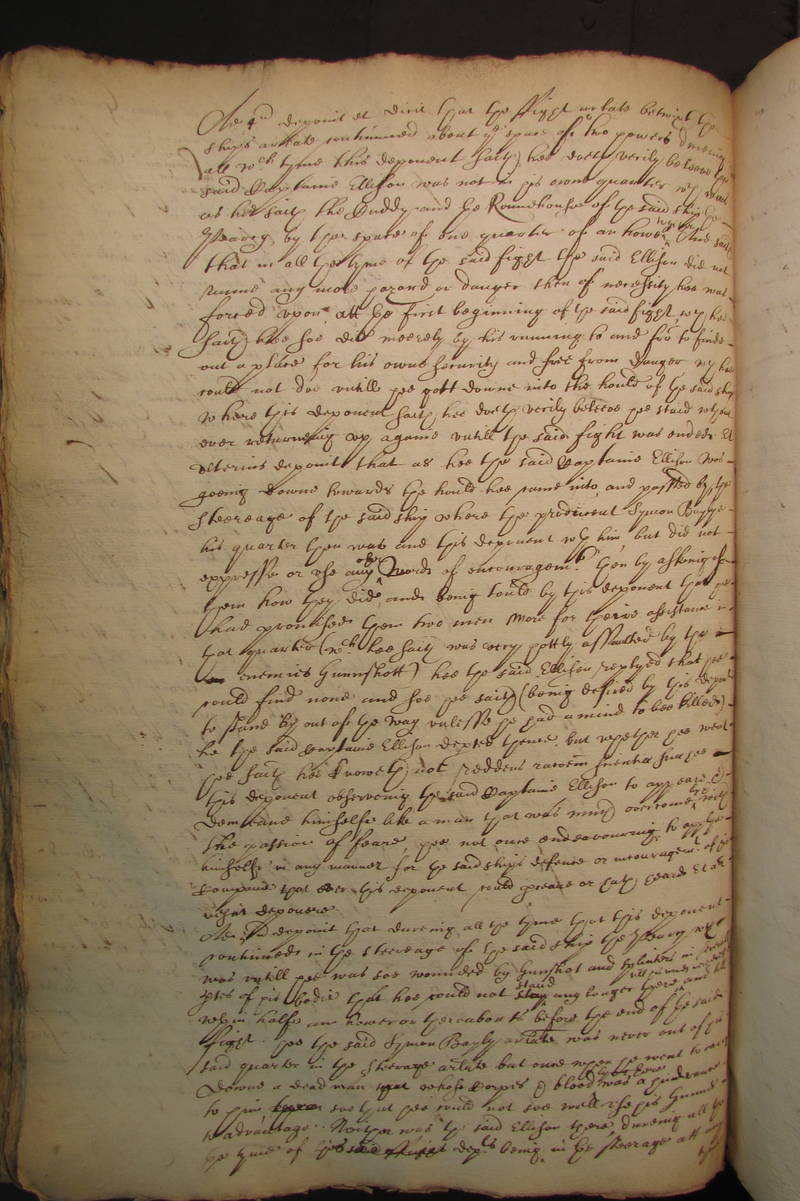 Ad 4um deponit et dicit that the ffight arlate betwixt the
shipps arlate continnued about ye space of two howers dureing
all wch tyme this deponent saith hee doeth verily beleeve the
said Captaine Ellison was not in his owne quarter wch was
as hee saith the Cuddy and the Roundhouse of the said ship the
Pearcy by the space of one quarter of an hower And saith
that in all the tyme of the said fight the said Ellison did not
runne any more hazard or danger then of necessity hee was
forced upon att the first beginning of the said fight, wch hee
saith hee soe did meerely by his running to and fro to finde
out a place for his owne security and free from danger wch hee
could not doe untill hee gott downe into the hould of the said ship
where this deponent saith hee doeth verily beleeve hee staid without
ever returneing up againe untill the said fight was ended Et
ulterius deponit that as hee the said Captaine Ellison was
goeing downe towards the hould hee came into and passed by the
Steereage of the said ship where the producent Symon Baylye
his quarter then was and this deponent wth him, but did not
expresse or use any other words of encouragemt then by asking of
them how they did, and being tould by this deponent that hee
had promised them two men more for theire assistance in
that quarter (wch hee saith was very hottly assaulted by the
enemies Gunnshott) hee the said Ellison replyed that hee
could find none and soe hee saith (being desired by this deponent
to stand by out of the way unlesse he had a mind to bee killed)
he the said Captaine Ellison depted thence, but whether hee went
hee saith hee knoweth not reddens rationem scientiae suae hee
this deponent observeing the said Captaine Ellison to appeare &
demeane himselfe like a man that was much overcome with
the passion of feare, hee not once endeavouring to applye
himselfe in any manner for the said ships defence or encouragemt of
Companie that ever this deponent could perceave or hath heard Et aliter
nescit deponere
Ad deponit that dureing all the tyme that this deponent
continued in the steereage of the said ship the Pearcy wch
was untill hee was soe wounded by Gunshot and splinters in severall
ptes of his bodie that hee could not stand any longer there and
wthin halfe an hower or thereabouts before the end of the said
fight. hee the said Symon Bayly arlate was never out of his
said quarter in the steerage arlate but once when he went to carry
downe a dead man whose corpes & blood was a hindrance
to him soe that hee could not soe well use his Gunns
to advantage. Neither was the said Ellison there dureing all the
the tyme of this depts being in the steerage att